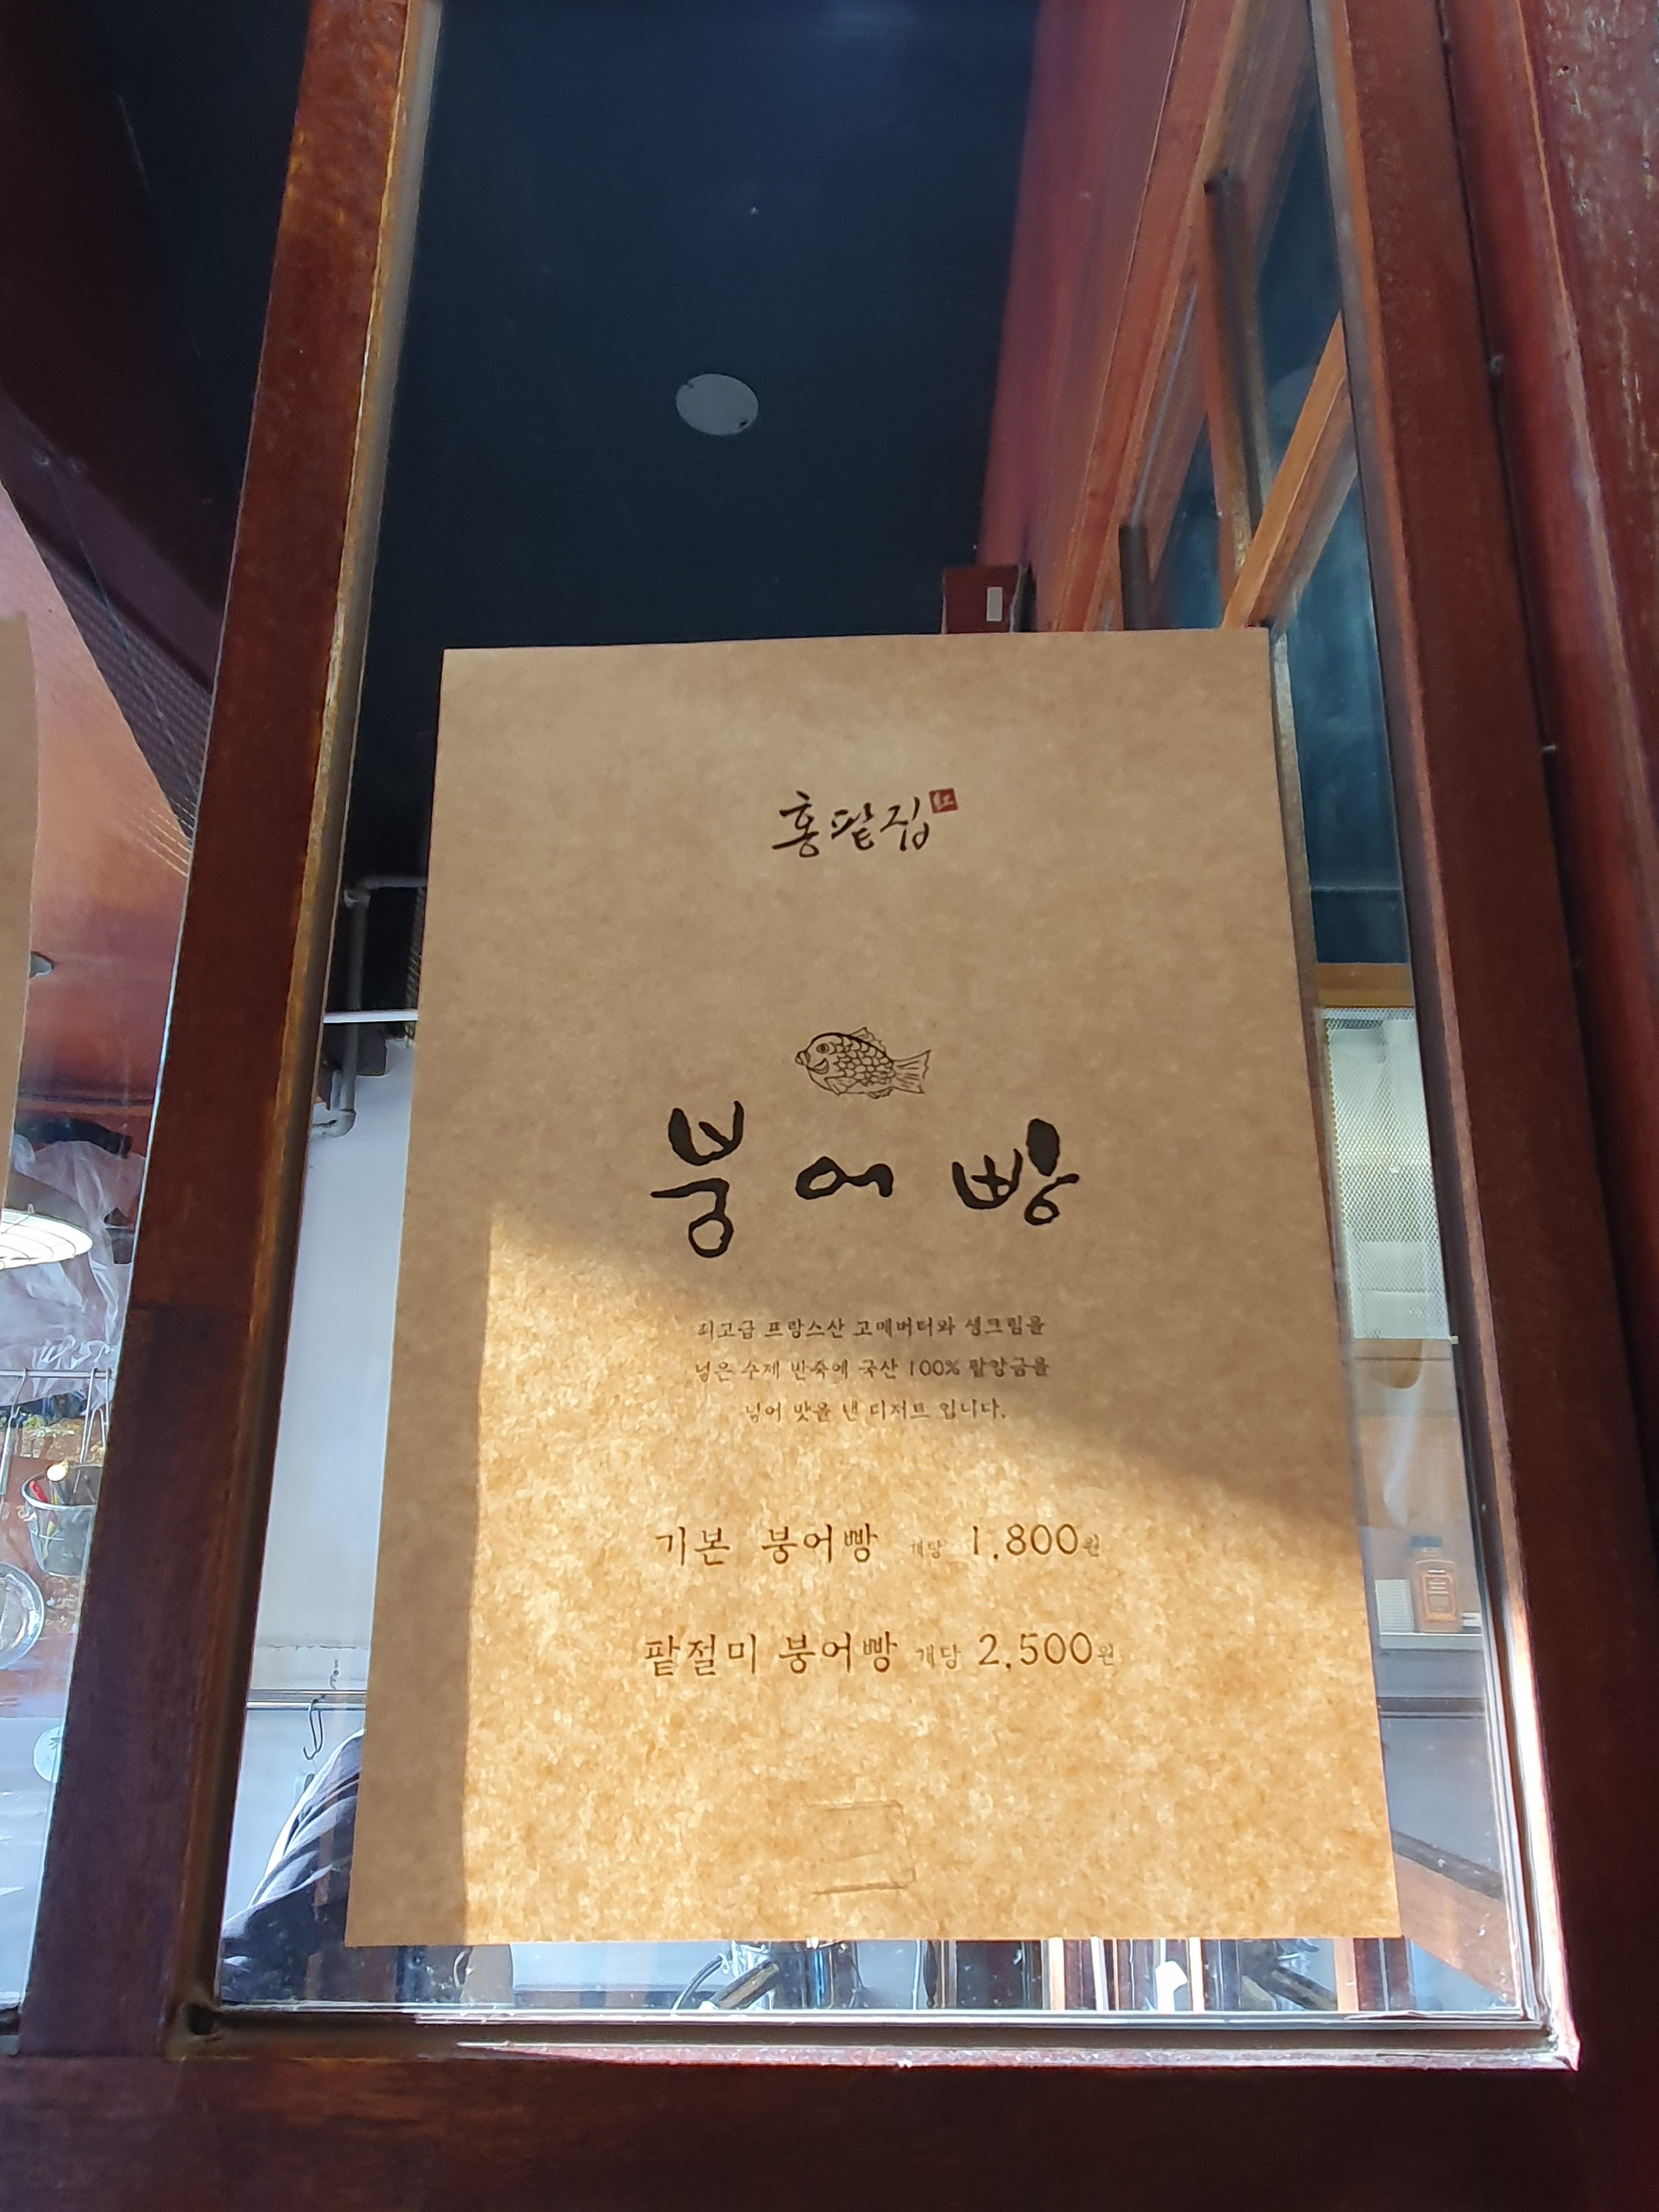 홍팥집 紅
붕어빵
최고급 프랑스산 고메버터와 생크림을
넣은 수제 반죽에 국산 100% 팥앙금을
넣어 맛을 낸 디저트 입니다.
기본 붕어빵 개당 1,800원
팥절미 붕어빵 개당 2,500원